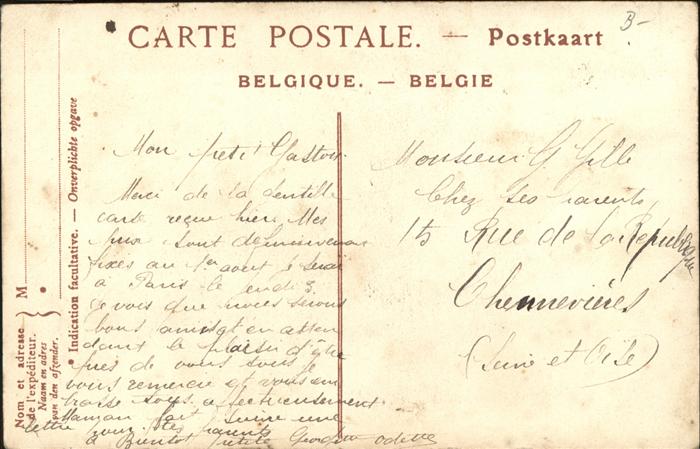 B-
CARTE POSTALE. — Postkaart
BELGIQUE. — BELGIE
Nom et adresse
de l'expéditeur.
Naam en adres
van den afzender.
M
• Indication facultative. — Onverplichte opgave
Mon petit Gaston
Merci de ta gentille
carte reçue hier. Mes
sont
fixés au 1er août je serai
à Paris le lendi 3.
je vois que nous serons
bons amis et en atten
dant le plaisir d'être
près de vous tous je
vous remercie et vous em
brasse tous affectueusement.
Maman fait suivre une
lettre pour tes parents
à Bientôt petite Odette
Monsieur G. Gille
Chez ses parents
15 Rue de la République
Chennevières
(Seine et Oise)